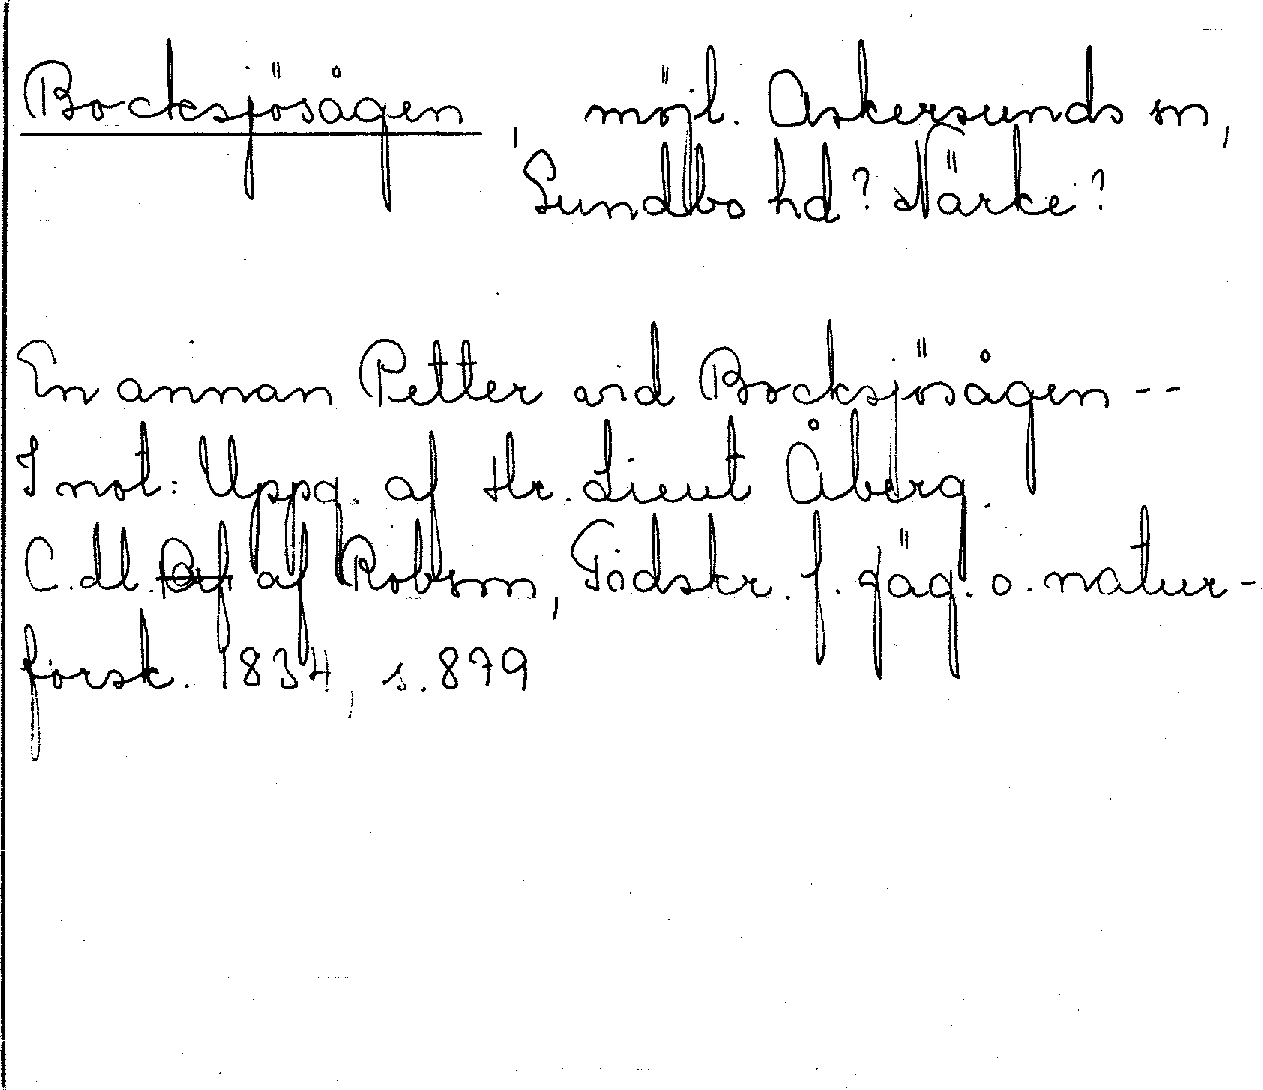 Bocksjösågen, möjl. Askersunds sn,
Sundbo hd? Närke?
En annan Petter vid Bocksjösågen --
I not: Uppg. af Hr. Lieut Åberg.
C. dl. af Robson, Tidskr. f. jäg. o. natur-
forsk. 1834, s. 879